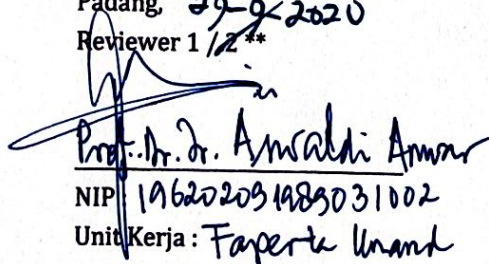 Padang, 29-9-2020
Reviewer 1 / 2 **
Prof. Dr. Ir. Aswaldi Anwar
NIP 196202091989031002
Unit Kerja : Faperta Unand